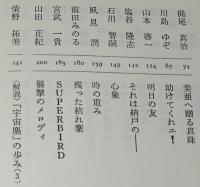 美亜へ贈る真珠 梶尾真治 71
助けてくれェ! 川島ゆぞ 87
明日の友 山本啓一 114
それは納戸の—— 塩谷隆志 124
心象 石川智嗣 142
時の重み 風見潤 149
残った枯れ葉 前田みのる 159
SUPERBIRD 宮武一貴 180
襲撃のメロディ 山田正紀 185
〈解説〉「宇宙塵」の歩み(3) 柴野拓美 242
200